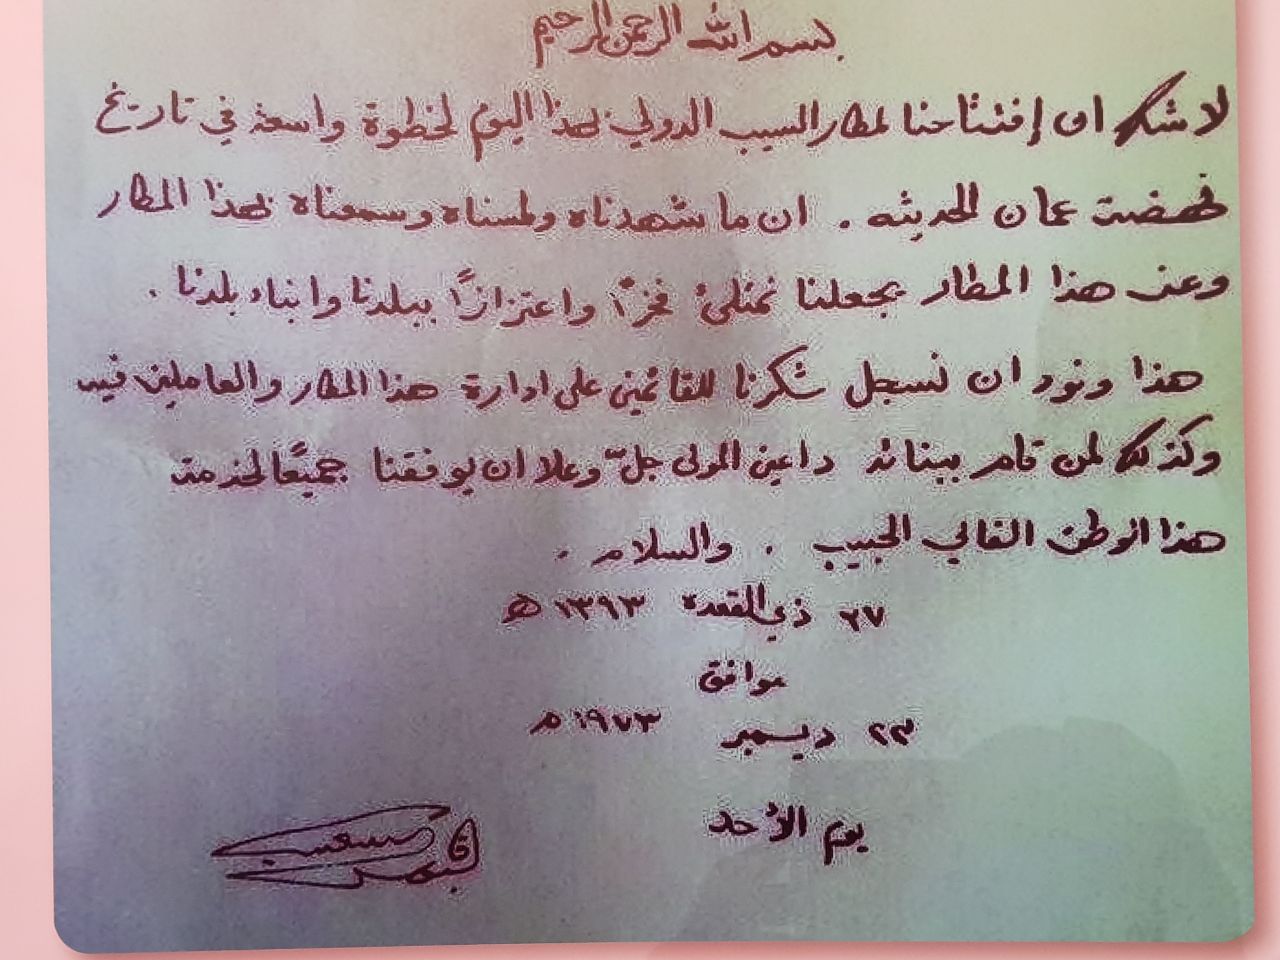 بسم الله الرحمن الرحيم
لا شك ان إفتتاحنا لمطار السيب الدولي لهذا اليوم لخطوة واسعة في تاريخ
نهضت عمان الحديثه . ان ما شهدناه ولمسناه وسمعناه لهذا المطار
وعن هذا المطار يجعلنا نمتلئ فخرًا واعتزازًا ببلدنا وابناء بلدنا .
هذا ونود ان نسجل شكرنا للقائمين على ادارة هذا المطار والعاملين فيه
وكذلك لمن قام ببنائه داعين المولى جلّ وعلا ان يوفقنا جميعًا لخدمة
هذا الوطن الغالي الحبيب . والسلام .
٢٧ ذي القعده ١٣٩٣ هـ
موافق
٢٣ ديسمبر ١٩٧٣ م
يوم الأحد